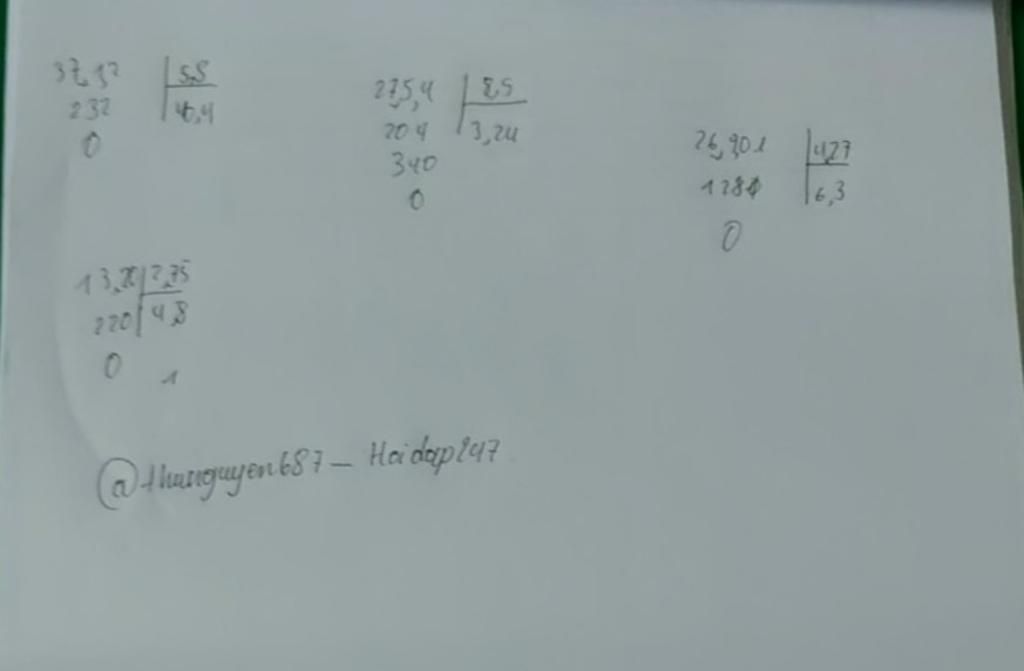 37,12 | 5,8
232 | 6,4
0
275,4 | 85
204 | 3,24
340
0
26,901 | 4,27
1281 | 6,3
0
13,20 | 2,75
220 | 4,8
0
1
@thunguyen687_ Hoidap247